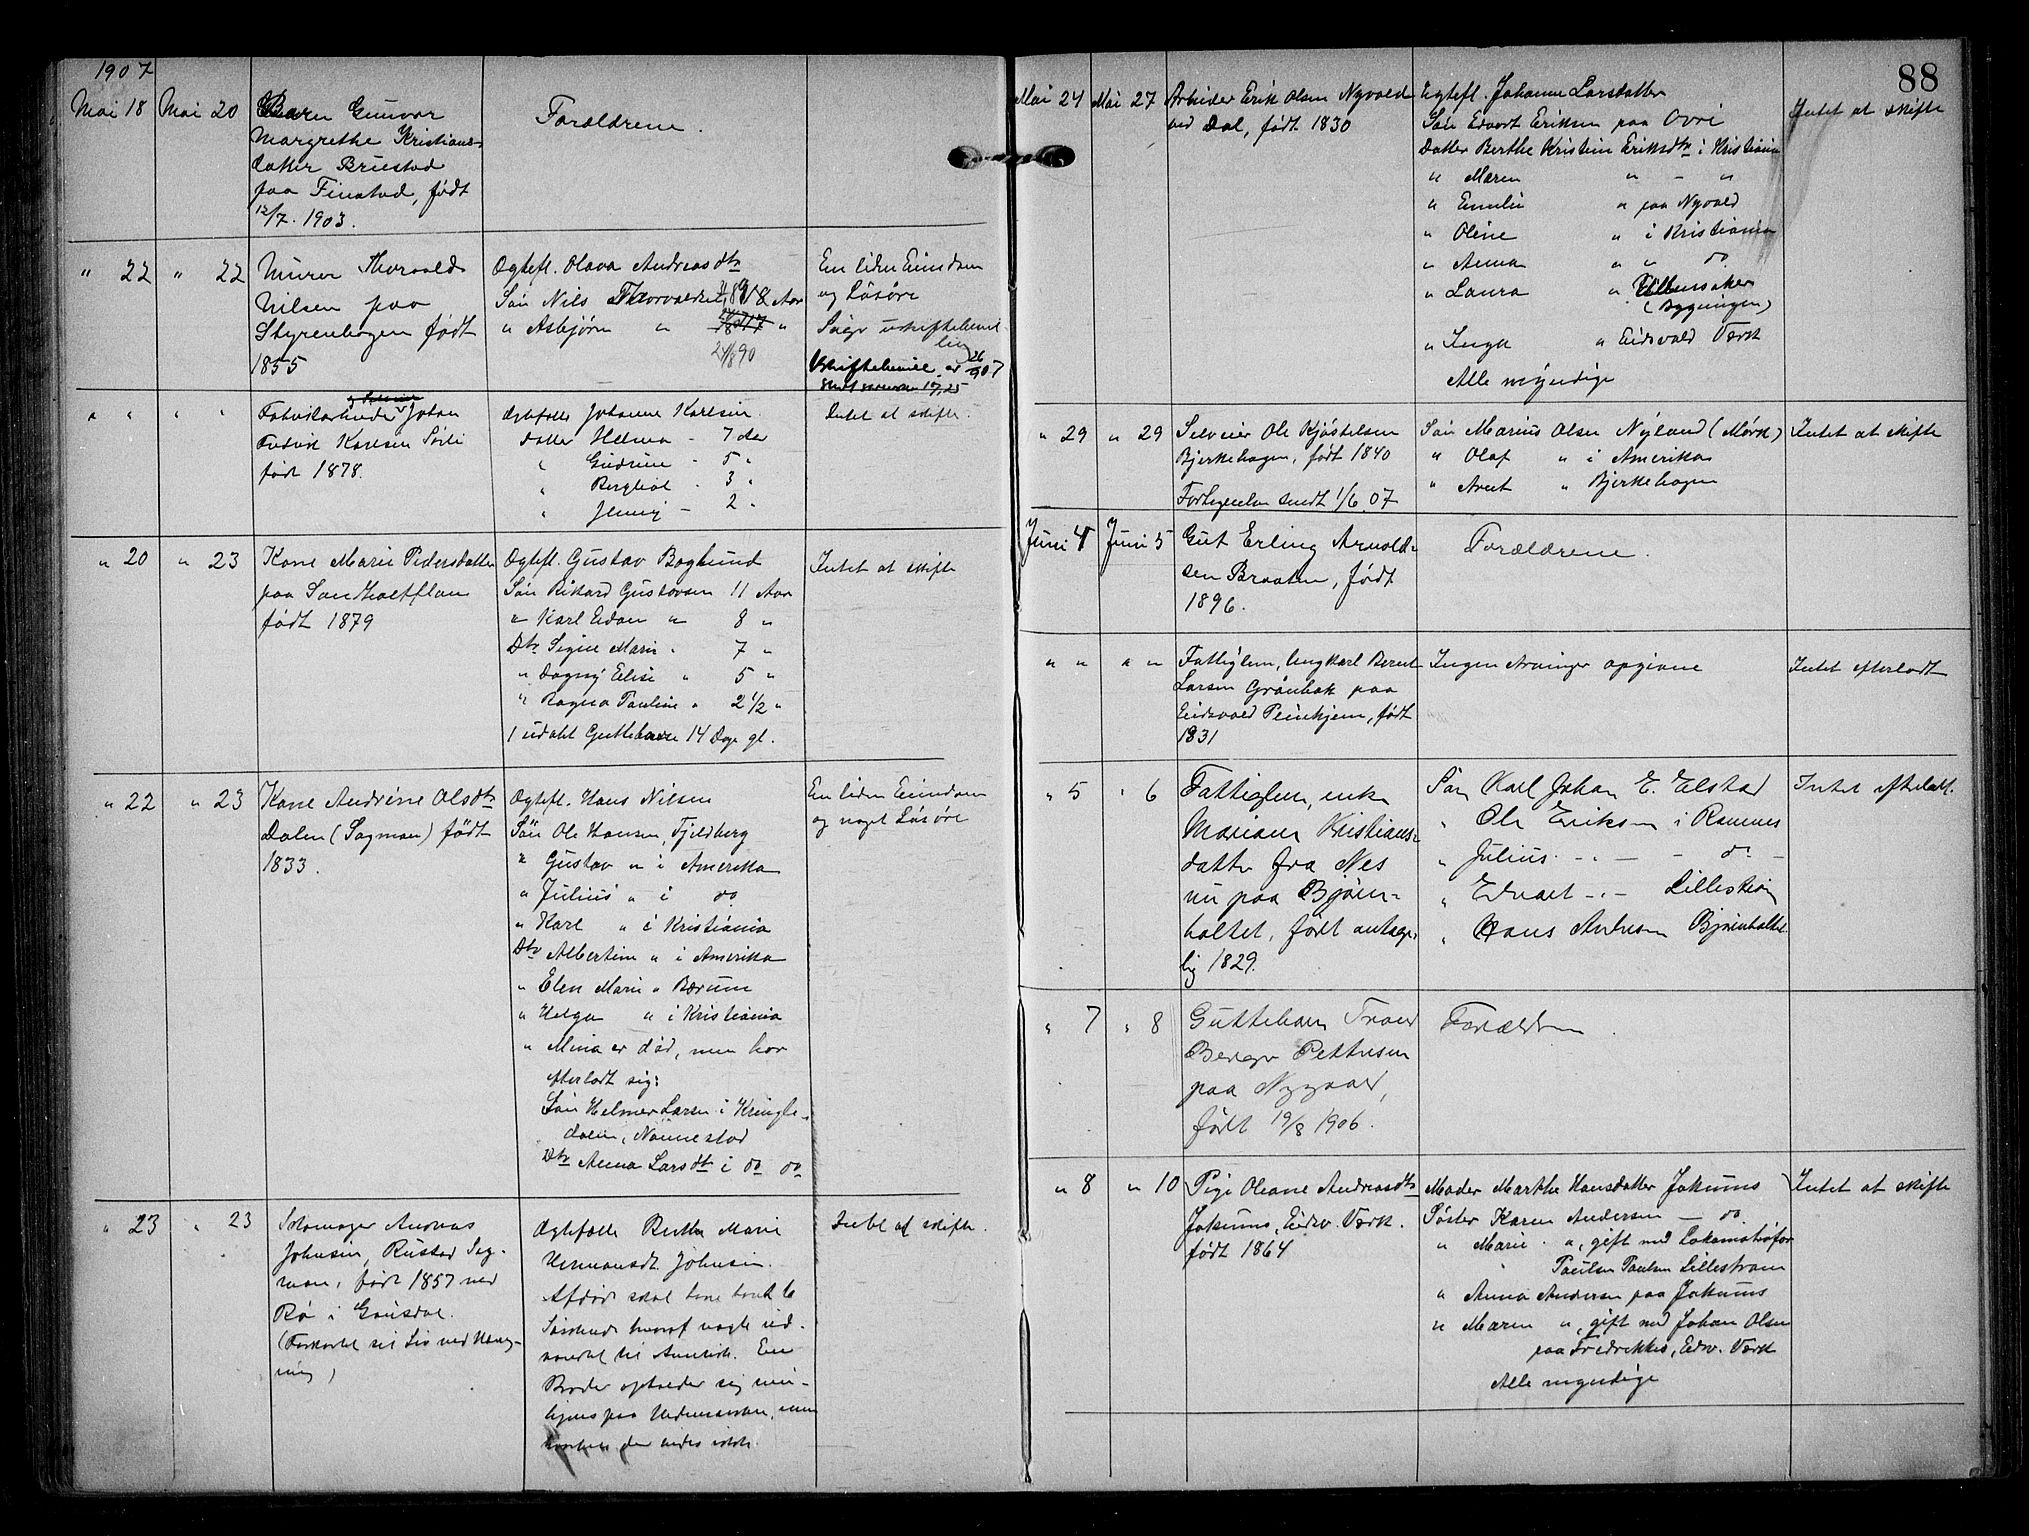 1907
Mai 18 Mai 20 Barn Gunvor
Margrethe Kristians-
datter Bruestad
paa Finstad, født
12/7. 1903.
Forældrene.
" 22 " 22 Murer Thorvald
Nilsen paa
Styrenhagen født
1855
Ægtefl. Olava Andreasdtr
Søn Nils Thorvaldsen 18 Aar
" Asbjørn "
24/8 90
En liden Eiendom
og Løsøre
" " " " Fabrikarbeider Johan
Ludvik Karlsen
født 1878.
Ægtefælle Johanne Karlsen.
Datter Helma - 7 Aar
" Gudrun - 5 "
" Bergliot - 3 "
" Jenny - 2 "
Intet at skifte.
" 20 " 23 Kone Marie Pedersdatter
paa Sandholtflan
født 1879
Ægtefl. Gustav Boglund
Søn Rikard Gustavsen 11 Aar
" Karl Edon " 8 "
Dtr Signe Marie " 7 "
" Dagny Elise " 5 "
" Ragna Pauline " 2 1/2 "
1 udøbt Guttebarn 14 Dage gl.
Intet at skifte
" 22 " 23 Kone Andrine Olsdtr
Dalen (Sagmoen) født
1833.
Ægtefl. Hans Nilsen
Søn Ole Hansen, Fjeldberg
" Gustav " i Amerika
" Julius " i do
" Karl " i Kristiania
Dtr Albertine " i Amerika
" Elen Marie " Bærum
" Helga " i Kristiania
" Mina er død, men har
efterladt sig:
Søn Helmer Larsen i Kringle-
dalen, Nannestad
Dtr Anna Larsdtr i do do
En liden Eiendom
og noget Løsøre
" 23 " 23 Skomager Andreas
Johnsen, Rustad Sag-
moen, født 1857 ved
Bø i Gausdal.
(Forkortet sit Liv ved Hæng-
ning)
Ægtefælle Berthe Marie
Hermansdt. Johnsen.
Afdøde skal have havt 6
Søskende hvoraf nogle ud-
vandret til Amerika. En
Broder opholder sig
paa Hedemarken, men
Intet at skifte.
88
Mai 24 Mai 27 Arbeider Erik Olsen Nyvold
ved Dal, født 1830
Ægtefl. Johanne Larsdatter
Søn Edvart Eriksen paa Ovri
Datter Berthe Kristine Eriksdtr i Kristiania
" Maren " - "
" Emilie " paa Nyvold
" Oline " i Kristiania
" Anna " " do.
" Laura " Ullensaker
(Bygningen)
" Inga " Eidsvold Værk
Alle myndige
Intet at skifte
" 29 " 29 Selveier Ole Kjøstelsen
Bjerkehagen, født 1840
Fortegnelse sendt 1/6 07
Søn Marius Olsen Nyland (Mørk)
" Olaf " i Amerika
" Arnt " Bjerkehagen
Intet at skifte
Juni 4 Juni 5 Gut Erling Arnold-
sen Braaten, født
1896.
Forældrene.
" " " " Fattiglem, Ungkarl Bernt
Larsen Grønbak paa
Eidsvold Pleiehjem, født
1831
Ingen Arvinger opgivne
Intet efterladt
" 5 " 6 Fattiglem, enke
Mariane Kristians-
datter fra Nes
nu paa Bjørn-
holtet, født antage-
lig 1829.
Søn Karl Johan E. Elstad
" Ole Eriksen i Romnes
" Julius - " - - do -
" Edvart - " - Lillestrøm
" Hans Andersen Bjørnholtet
Intet efterladt.
" 7 " 8 Guttebarn Trond
Birger Pettersen
paa Nygaard,
født 19/8 1906.
Forældrene.
" 8 " 10 Pige Oleane Andreasdtr
Jakums, Eidsv. Værk.
født 1864
Moder Marthe Hansdatter Jakums
Søster Karen Andersen - do.
" Marie " , gift med Lokomotivfør
Paulsen Lillestrøm
" Anna Andersen paa Jakums
" Maren " , gift med Johan Olsen
paa Fredrikkes, Eidsv. Værk
Alle myndige
Intet at skifte